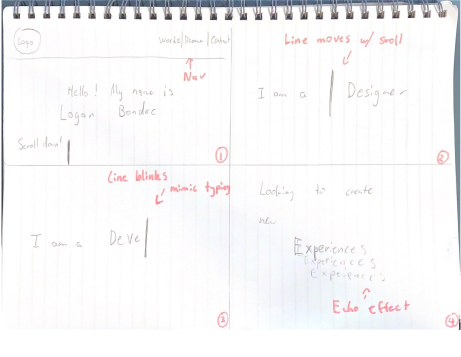 Logo
Works|Resume|Contact
Nav
Hello! My name is
Logan Bondoc
Scroll down!
1
Line moves w/ scroll
I am a | Designer
2
Line blinks
mimic typing
I am a Deve|
3
Looking to create
new
Experiences
Experiences
Experiences
Echo effect
4